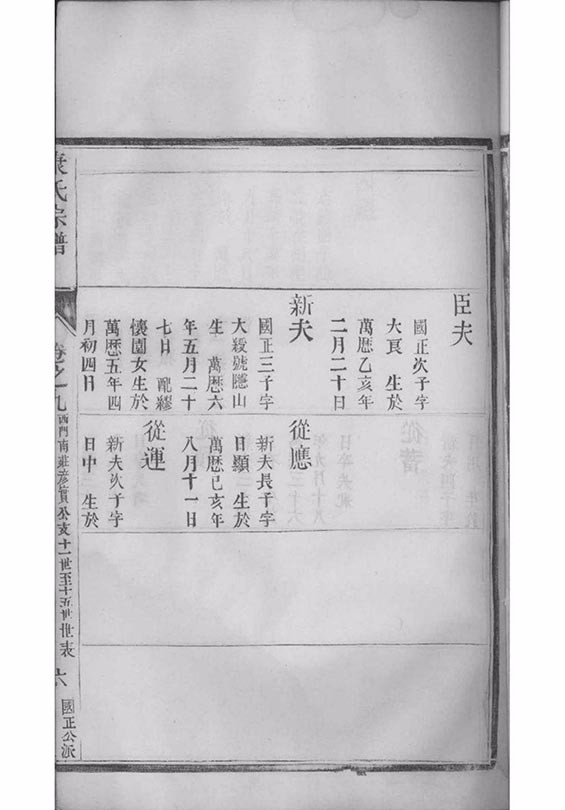 臣夫
國正次子字
大良 生於
萬曆乙亥年
二月二十日
新夫
國正三子字
大綬號隱山
生 萬曆六
年五月二十
七日 配繆
懷園女生於
萬曆五年四
月初四日
從應
新夫長子字
日顯 生於
萬曆己亥年
八月十一日
從運
新夫次子字
日中 生於
氏宗譜
卷之一九
西門南莊彥賓公支十一世至十五世世表
六
國正公派